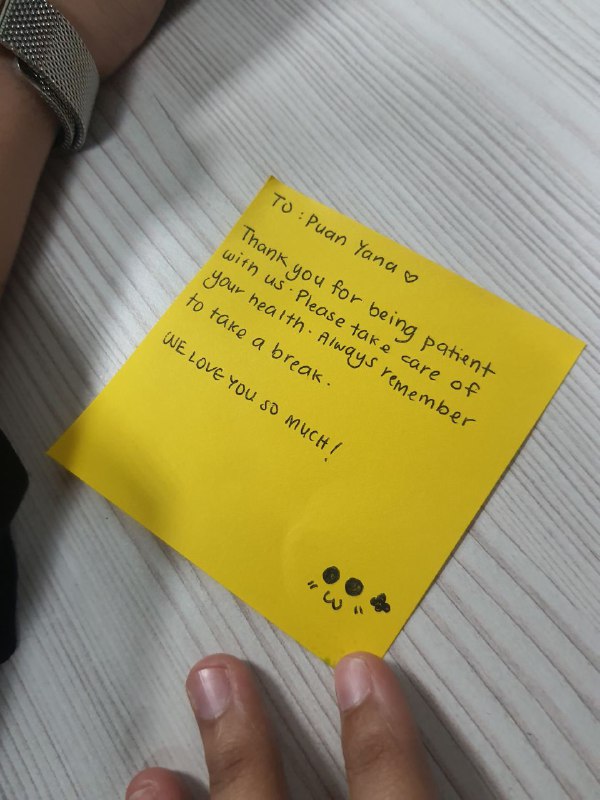 To : Puan Yana ♡
Thank you for being patient
with us. Please take care of
your health. Always remember
to take a break.
WE LOVE YOU SO MUCH!